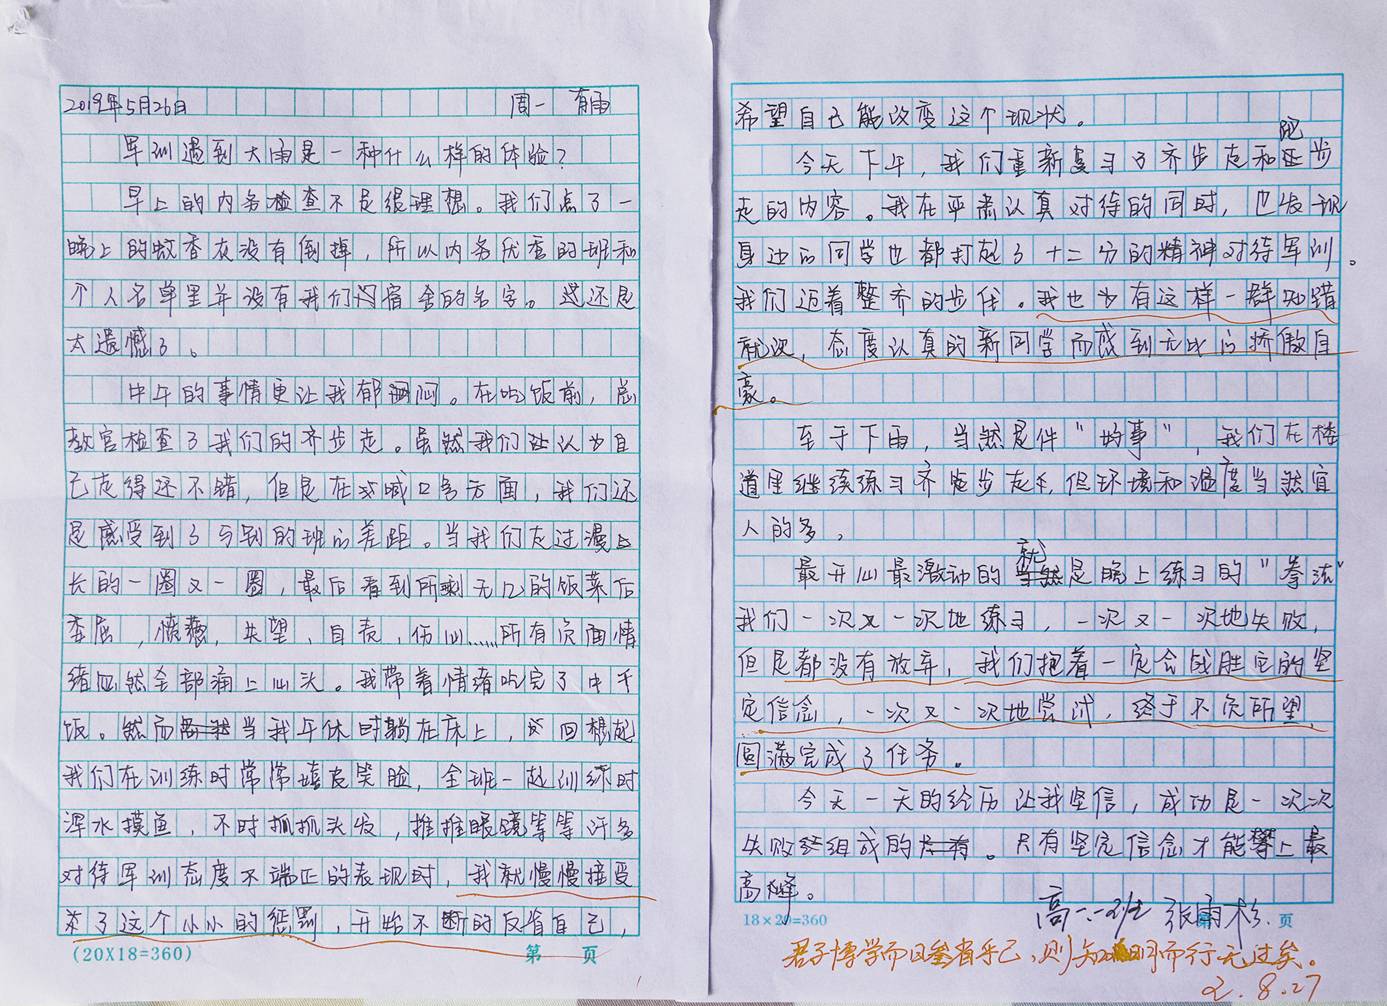 2019年5月26日 周一 有雨
军训遇到大雨是一种什么样的体验?
早上的内务检查不是很理想。我们点了一
晚上的蚊香灰没有倒掉，所以内务优秀的班和
个人名单里并没有我们宿舍的名字。这还是
太遗憾了。
中午的事情更让我郁闷。在吃饭前，总
教官检查了我们的齐步走。虽然我们让认为自
己走得还不错，但是在喊口号方面，我们还
是感受到了与别的班的差距。当我们走过漫
长的一圈又一圈，最后看到所剩无几的饭菜后
委屈，愤懑，失望，自责，伤心……所有负面情
绪全部涌上心头。我带着情绪吃完了中午
饭。然而当我午休时躺在床上，回想起
我们在训练时常常嬉皮笑脸，全班一起训练时
浑水摸鱼，不时抓抓头发，推推眼镜等等许多
对待军训态度不端正的表现时，我就慢慢接受
了这个小小的惩罚，开始不断的反省自己，
(20X18=360) 第 页
希望自己能改变这个现状。
今天下午，我们重新复习了齐步走和跑步
走的内容。我在严肃认真对待的同时，也发现
身边的同学也都打起了十二分的精神对待军训。
我们迈着整齐的步伐。我也为有这样一群知错
就改，态度认真的新同学而感到无比的骄傲自
豪。
至于下雨，当然是件"好事"，我们在楼
道里继续练习齐步走，但环境和温度当然宜
人的多。
最开心最激动的就是晚上练习的"拳法"
我们一次又一次地练习，一次又一次地失败，
但是都没有放弃，我们抱着一定会战胜它的坚
定信念，一次又一次地尝试，终于不负所望，
圆满完成了任务。
今天一天的经历让我坚信，成功是一次次
失败组成的。只有坚定信念才能攀上最
高峰。
18×20=360 第 页
高一.一班 张雨杉.
君子博学而日参省乎己，则知明而行无过矣。
2.8.27